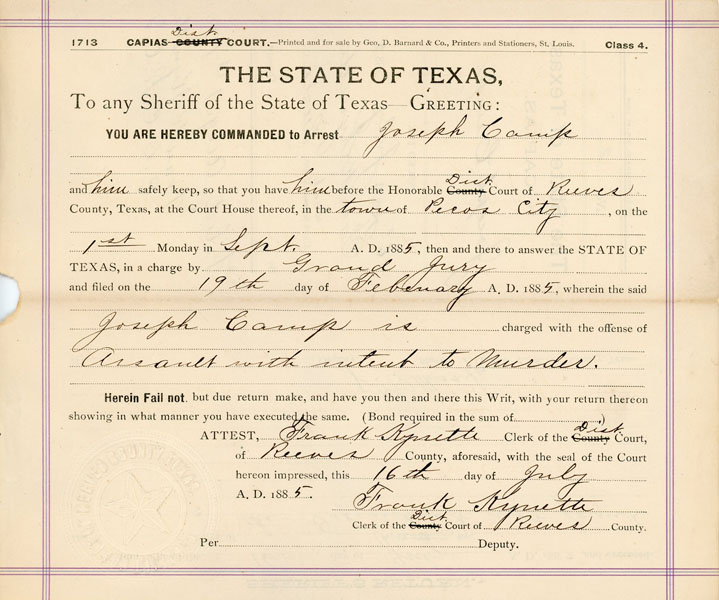 Dist.
1713 CAPIAS COUNTY COURT.—Printed and for sale by Geo. D. Barnard & Co., Printers and Stationers, St. Louis. Class 4.
THE STATE OF TEXAS,
To any Sheriff of the State of Texas—GREETING:
YOU ARE HEREBY COMMANDED to Arrest Joseph Camp
and him safely keep, so that you have him before the Honorable Dist. County Court of Reeves
County, Texas, at the Court House thereof, in the town of Pecos City, on the
1st Monday in Sept. A. D. 1885, then and there to answer the STATE OF
TEXAS, in a charge by Grand Jury
and filed on the 19th day of Febuary A. D. 1885, wherein the said
Joseph Camp is charged with the offense of
Assault with intent to Murder.
Herein Fail not, but due return make, and have you then and there this Writ, with your return thereon
showing in what manner you have executed the same. (Bond required in the sum of )
ATTEST, Frank Kysette Clerk of the Dist. County Court,
of Reeves County, aforesaid, with the seal of the Court
hereon impressed, this 16th day of July
A. D. 1885. Frank Kysette
Clerk of the Dist. County Court of Reeves County.
Per Deputy.